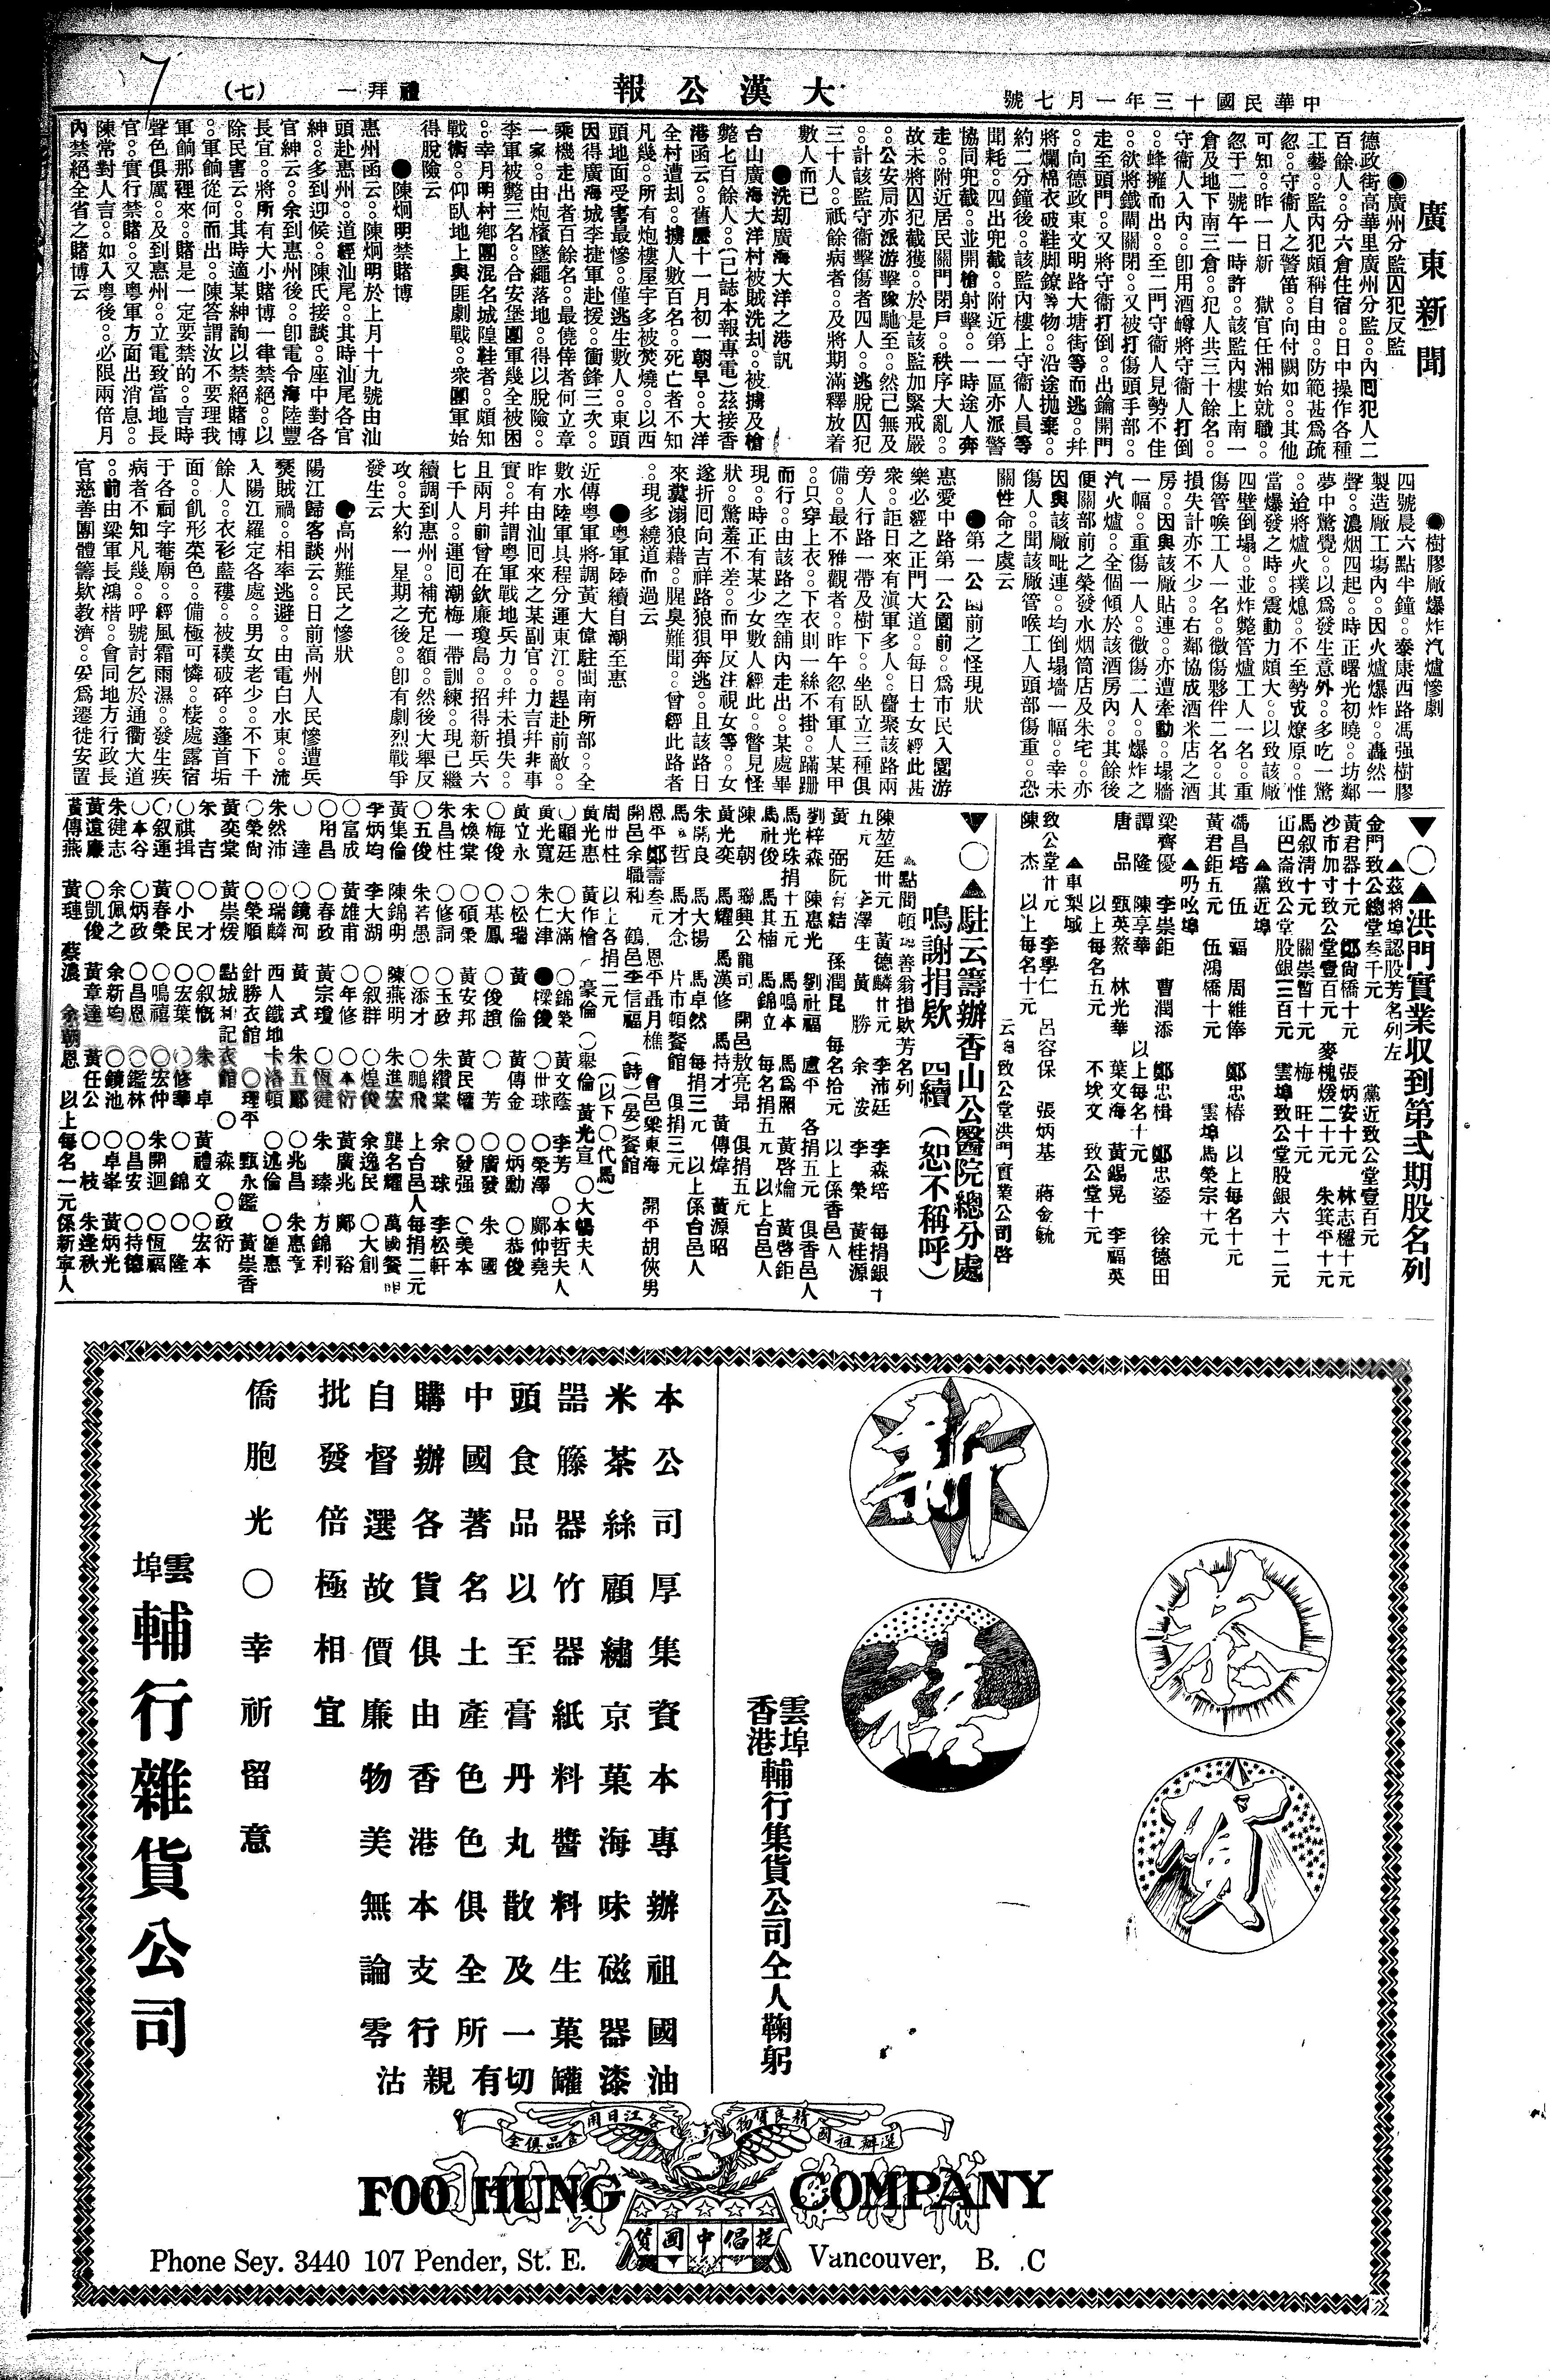 中華民國十三年一月七號
大漢公報
禮拜一
（七）
廣東新聞
●廣州分監囚犯反監
德政街高華里廣州分監。。內囘犯人二
百餘人。。分六倉住宿。。日中操作各種
工藝。。監內犯頗稱自由。。防範甚爲疏
忽。。守衞人之警笛。。向付闕如。。其他
可知。。昨一日新　獄官任湘始就職。。
忽于二號午一時許。。該監內樓上南一
倉及地下南三倉。。犯人共三十餘名。。
守衞人入內。。卽用酒罇將守衞人打倒
。。蜂擁而出。。至二門守衞人見勢不佳
。。欲將鐵閘關閉。。又被打傷頭手部。。
走至頭門。。又將守衞打倒。。出鑰開門
。。向德政東文明路大塘街等而逃。。幷
將爛棉衣破鞋脚鐐等物。。沿途抛棄。。
約二分鐘後。。該監內樓上守衞人員等
聞耗。。四出兜截。。附近第一區亦派警
協同兜截。。並開槍射擊。。一時途人奔
走。。附近居民關門閉戶。。秩序大亂。。
故未將囚犯截獲。。於是該監加緊戒嚴
。。公安局亦派游擊隊馳至。。然已無及
。。計該監守衞擊傷者四人。。逃脫囚犯
三十人。。祇餘病者。。及將期滿釋放着
數人而已
●洗刧廣海大洋之港訊
台山廣海大洋村被賊洗刧。。被擄及槍
斃七百餘人。。（已誌本報專電）茲接香
港函云。。舊曆十一月初一朝早。。大洋
全村遭刧。。擄人數百名。。死亡者不知
凡幾。。所有炮樓屋宇多被焚燒。。以西
頭地面受害最慘。。僅逃生數人。。東頭
因得廣海城李捷軍赴援。。衝鋒三次。。
乘機走出者百餘名。。最僥倖者何立章
一家。。由炮樓墜繩落地。。得以脫險。。
李軍被斃三名。。合安堡團軍幾全被困
。。幸月明村鄉團混名城隍鞋者。。頗知
戰術。。仰臥地上與匪劇戰。。衆團軍始
得脫險云
●陳烱明禁賭博
惠州函云。。陳烱明於上月十九號由汕
頭赴惠州。。道經汕尾。。其時汕尾各官
紳。。多到迎候。。陳氏接談。。座中對各
官紳云。。余到惠州後。。卽電令海陸豐
長宜。。將所有大小賭博一律禁絕。。以
除民害云。。其時適某紳詢以禁絕賭博
。。軍餉從何而出。。陳答謂汝不要理我
軍餉那裡來。。賭是一定要禁的。。言時
聲色俱厲。。及到惠州。。立電致當地長
官。。實行禁賭。。又粵軍方面出消息。。
陳常對人言。。如入粵後。。必限兩倍月
內禁絕全省之賭博云
●樹膠厰爆炸汽爐慘劇
四號晨六點半鐘。。泰康西路馮强樹膠
製造厰工塲內。。因火爐爆炸。。轟然一
聲。。濃烟四起。。時正曙光初曉。。坊鄰
夢中驚覺。。以爲發生意外。。多吃一驚
。。迨將爐火撲熄。。不至勢成燎原。。惟
當爆發之時。。震動力頗大。。以致該厰
四壁倒塌。。並炸斃管爐工人一名。。重
傷管喉工人一名。。微傷夥伴二名。。其
損失計亦不少。。右鄰協成酒米店之酒
房。。因與該厰貼連。。亦遭牽動。。塌牆
一幅。。重傷一人。。微傷二人。。爆炸之
汽火爐。。全個傾於該酒房內。。其餘後
便關部前之榮發水烟筒店及朱宅。。亦
因與該厰毗連。。均倒塌墻一幅。。幸未
傷人。。聞該厰管喉工人頭部傷重。。恐
關性命之虞云
●第一公園前之怪現狀
惠愛中路第一公園前。。爲市民入園游
樂必經之正門大道。。每日士女經此甚
衆。。詎日來有滇軍多人。。醫聚該路兩
旁人行路一帶及樹下。。坐臥立三種俱
備。。最不雅觀者。。昨午忽有軍人某甲
。。只穿上衣。。下衣則一絲不掛。。蹣跚
而行。。由該路之空舖內走出。。某處畢
現。。時正有某少女數人經此。。瞥見怪
狀。。驚羞不差。。而甲反注視女等。。女
遂折囘向吉祥路狼狽奔逃。。且該路日
來糞溺狼藉。。腥臭難聞。。曾經此路者
。。現多繞道而過云
●粵軍陸續自潮至惠
近傳粵軍將調黃大偉駐閩南所部。。全
數水陸軍具程分運東江。。趕赴前敵。。
昨有由汕囘來之某副官。。力言幷非事
實。。幷謂粵軍戰地兵力。。幷未損失。。
且兩月前曾在欽廉瓊島。。招得新兵六
七千人。。運囘潮梅一帶訓練。。現已繼
續調到惠州。。補充足額。。然後大舉反
攻。。大約一星期之後。。卽有劇烈戰爭
發生云
●高州難民之慘狀
陽江歸客談云。。日前高州人民慘遭兵
燹賊禍。。相率逃避。。由電白水東。。流
入陽江羅定各處。。男女老少。。不下千
餘人。。衣衫藍褸。。被襆破碎。。蓬首垢
面。。飢形菜色。。備極可憐。。棲處露宿
于各祠字菴廟。。經風霜雨濕。。發生疾
病者不知凡幾。。呼號討乞於通衢大道
。。前由梁軍長鴻楷。。會同地方行政長
官慈善團體籌欵教濟。。妥爲遷徒安置
▼○▲洪門實業収到第弍期股名列
▲茲將埠認股芳名列左
金門致公總堂叁千元　黨近致公堂壹百元
黃君器十元　鄭尙橋十元　張炳安十元　林志穩十元
沙市加寸致公堂壹百元　麥槐煖二十元　朱箕平十元
馬叙清十元　關崇暫十元　梅　旺十元
山巴崙致公堂股銀三百元　雲埠致公堂股銀六十二元
▲黨近埠
馮昌培　伍　福　周維俸　鄭忠椿　以上每名十元
黃君鉅五元　伍鴻橋十元　雲埠馬榮宗十元
▲叼吆埠
梁齊優　李崇鉅　曹潤添　鄭忠楫　鄭忠鋈　徐德田
譚　隆　陳享華　以上每名十元
唐　品　甄英熬　林光華　葉文海　黃錫晃　李福英
以上每名五元　致公堂十元
▲車梨域
致公堂廿元　李學仁　呂容保　張炳基　蔣金毓
陳　杰　以上每名十元
云埠致公堂洪門實業公司啓
▼○▲駐云籌辦香山公醫院總分處
鳴謝捐欵　四續（恕不稱呼）
點問頓埠善翁捐欵芳名列
陳堃廷卅元　黃德麟廿元　李沛廷　李森培　每捐銀十
五元　李澤生　黃　勝　余　姿　李　榮　黃桂源
黃　弼　阮有結　孫潤昆　每名拾元　以上係香邑人
劉梓森　陳惠光　劉社福　盧平　各捐五元　俱香邑人
馬光珠捐十五元　馬鳴本　馬爲照　黃啓焴　黃啓鉅
馬社俊　馬其楠　馬錦立　每名捐五元　以上台邑人
陳　朝　聯興公寵司　開邑敖亮昻　俱捐五元
黃光奕　馬耀　馬漢修　馬持才　黃傳煒　黃源昭
朱開良　馬大揚　馬卓然　每捐三元　以上係台邑人
馬　哲　馬才念　片市頓餐館　俱捐三元
恩平鄭壽叁元　恩平聶月樵　會邑梁東海　開平胡俠男
開邑余職和　鶴邑李信福　（詩）（晏）餐館
周世柱　以上各捐二元　（以下○代馬）
黃光惠　黃作檜　○豪倫　○舉倫　黃光宣　○大暢夫人
○顯廷　○大滿　○錦榮　黃文蔭　李芳　○本哲夫人
黃光寬　朱仁津　●樑俊　○世球　○榮澤　鄺仲堯
黃立永　○松瑞　黃　倫　黃傳金　○炳勳　○恭俊
○梅俊　○基鳳　○俊趙　○　芳　○廣發　朱　國
朱煥棠　○碩榮　黃安邦　黃民權　○發强　○美本
朱昌柱　○修詞　○玉政　朱纘棠　余　球　李松軒
○五俊　朱若愚　○添才　○鵬飛　上台邑人每捐二元
黃集倫　陳錦明　陳燕明　朱進宏　龔名耀　萬國餐館
李炳均　李大湖　○叙群　○煌俊　余逸民　○大創
○富成　黃雄甫　○年修　○本衍　黃廣兆　鄺　裕
○用昌　○春政　黃宗瓊　○恆健　朱　臻　方錦利
○　達　○鏡河　黃　式　朱五鄺　○兆昌　朱惠章
朱然沛　○瑞麟　西人鐵地卡洛頓　○述倫　○滙惠
○榮尙　○榮順　針勝衣館　○理平　甄永鑑　黃崇香
黃奕棠　黃崇煖　點城和記衣館　○　森　○政衍
朱　吉　○　才　○叙慨　朱　卓　黃禮文　○宏本
○祺揖　○小民　○宏葉　○修華　○　錦　○　隆
○叙運　黃春榮　○鳴禧　○宏仲　朱開迴　○恆福
○本谷　○炳政　○昌恩　○鑑林　○昌安　○持德
朱健志　余佩之　余新均　○鏡池　○卓峯　黃炳光
黃遠廉　○凱俊　黃章達　黃任公　○　枝　朱逢秋
黃傳燕　黃璉　蔡濃　余朝恩　以上每名一元係新寧人
新
春
禧
賀
雲埠
香港
輔行集貨公司仝人鞠躬
本公司厚集資本專辦祖國油
米茶絲顧繡京菓海味磁器漆
噐籐器竹器紙料醬料生菓罐
頭食品以至膏丹丸散及一切
中國著名土產色色俱全所有
購辦各貨俱由香港本支行親
自督選故價廉物美無論零沽
批發倍極相宜
僑胞光○幸祈留意
雲埠
輔行雜貨公司
選辦祖國
精良貨物
谷江日用
食品俱全
FOO HUNG COMPANY
輔行雜貨公司
提倡中國貨
Phone Sey. 3440 107 Pender, St. E. Vancouver, B. C